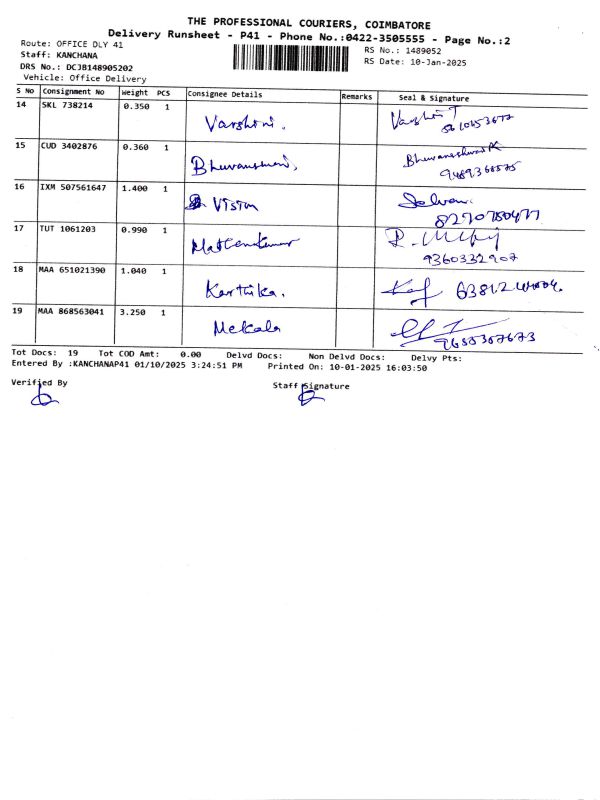 THE PROFESSIONAL COURIERS, COIMBATORE
Delivery Runsheet - P41 - Phone No.:0422-3505555 - Page No.:2
Route: OFFICE DLY 41
RS No.: 1489052
Staff: KANCHANA
RS Date: 10-Jan-2025
DRS No.: DCJB148905202
Vehicle: Office Delivery
S No Consignment No Weight PCS Consignee Details Remarks Seal & Signature
14 SKL 738214 0.350 1 Varshini.
15 CUD 3402876 0.360 1 Bhuvaneshwari,
9489368575
16 IXM 507561647 1.400 1 Vision Selvam
8270780477
17 TUT 1061203 0.990 1
9360332907
18 MAA 651021390 1.040 1 Karthika.
19 MAA 868563041 3.250 1 Mekala
9655307673
Tot Docs: 19 Tot COD Amt: 0.00 Delvd Docs: Non Delvd Docs: Delvy Pts:
Entered By :KANCHANAP41 01/10/2025 3:24:51 PM Printed On: 10-01-2025 16:03:50
Verified By Staff Signature